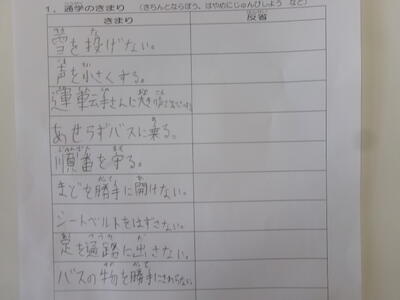 1. 通学のきまり （きちんとならぼう、はやめにじゅんびしよう など）
きまり 反省
雪を投げない。
声を小さくする。
運転手さんに
あせらずバスに乗る。
順番を守る。
まどを勝手に開けない。
シートベルトをはずさない。
足を通路に出さない。
バスの物を勝手にさわらない。